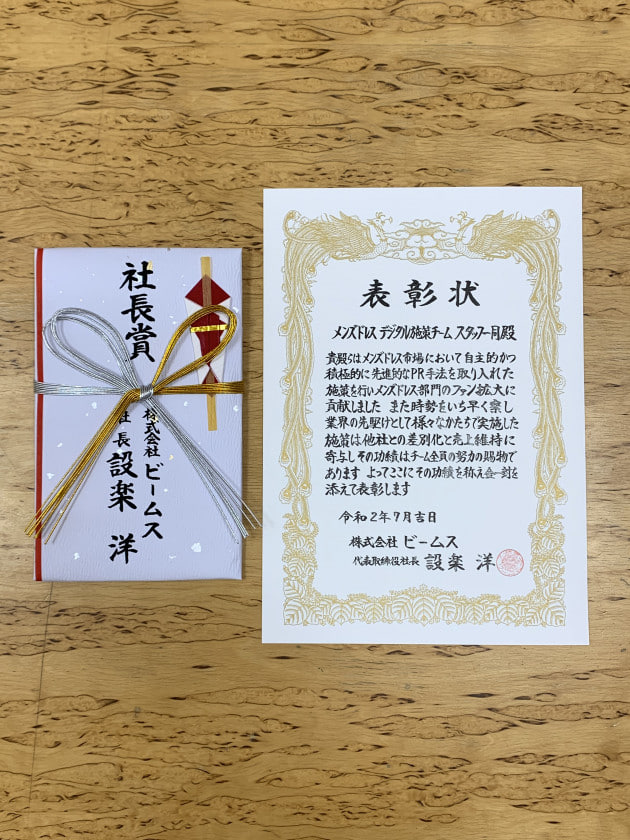 社長賞
株式会社 ビームス
社長 設楽 洋
表彰状
メンズドレス デジタル施策チーム スタッフ一同殿
貴殿らはメンズドレス市場において自主的かつ
積極的に先進的なPR手法を取り入れた
施策を行いメンズドレス部門のファン拡大に
貢献しました また時勢をいち早く察し
業界の先駆けとして様々なかたちで実施した
施策は他社との差別化と売上維持に
寄与しその功績はチーム全員の努力の賜物で
あります よってここにその功績を称え金一封を
添えて表彰します
令和2年7月吉日
株式会社 ビームス
代表取締役社長 設楽 洋